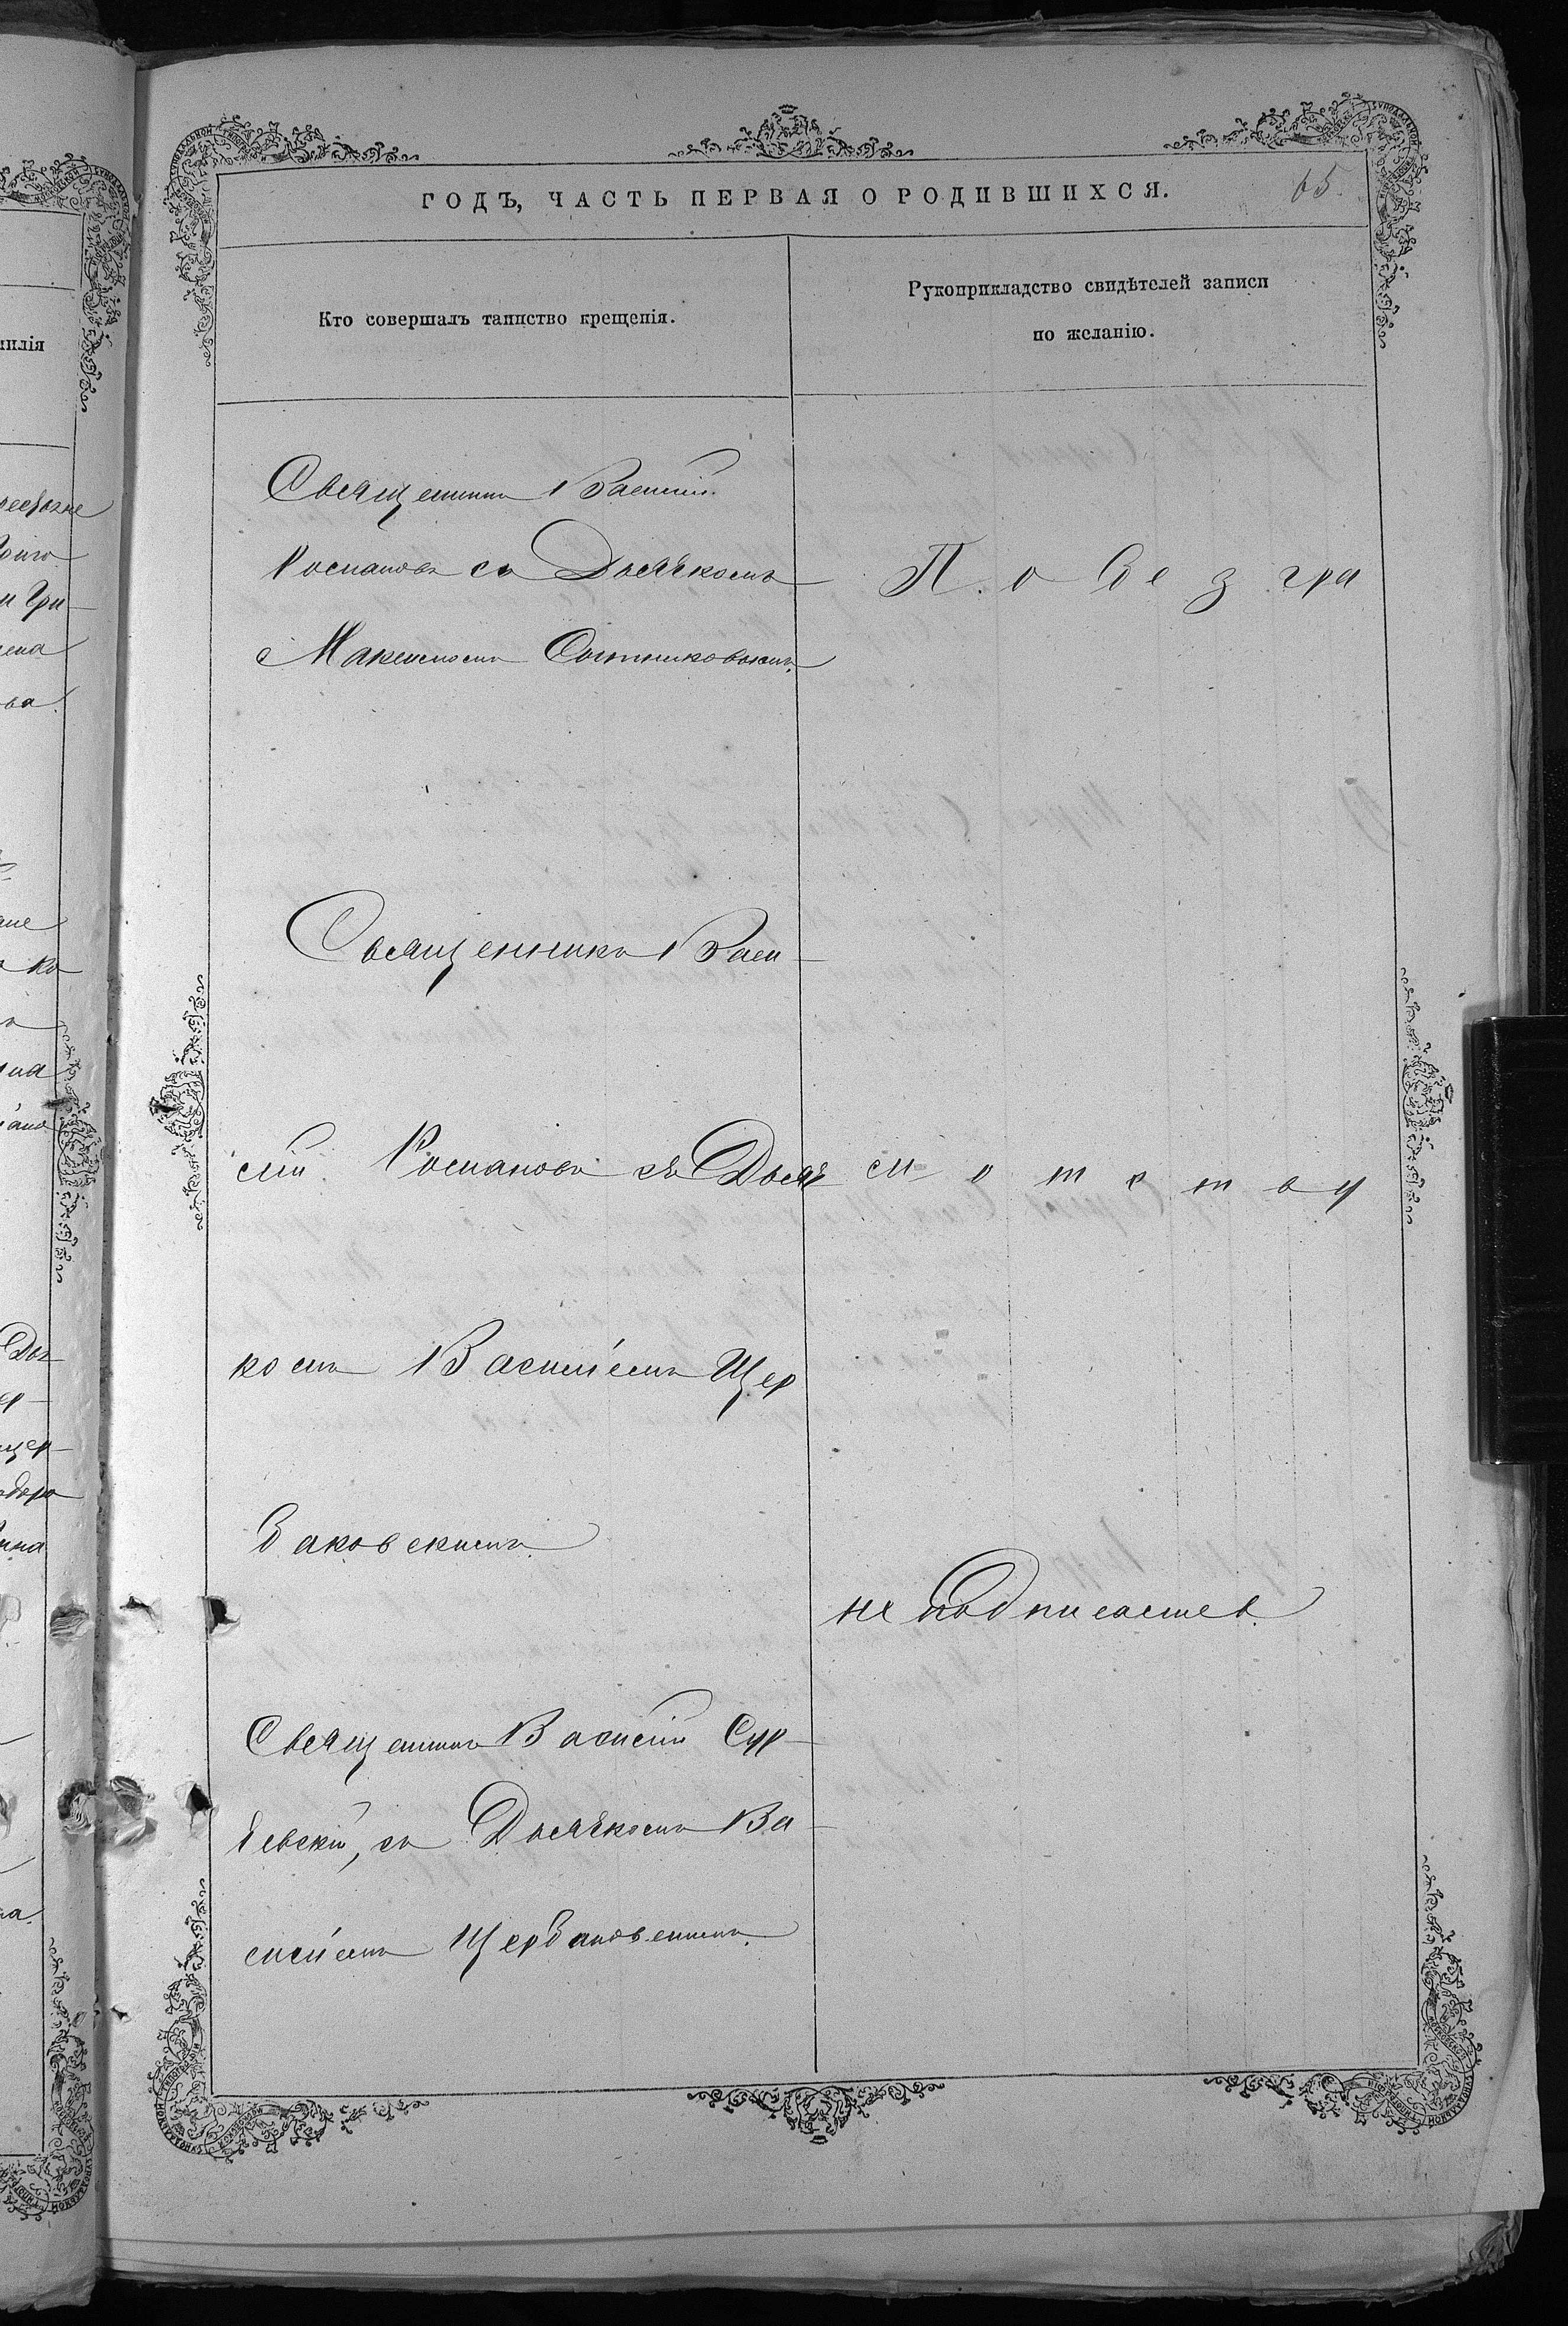 ГОДЪ, ЧАСТЬ ПЕРВАЯ О РОДИВШИХСЯ.
65.
Кто совершалъ таинство крещенія.
Рукоприкладство свидѣтелей записи
по желанію.
Священникъ Василій
Романовъ съ Дьячкомъ
Максимомъ Сотниковымъ.
По безгра
Священникъ Васи-
лій Романовъ съ Дьяч
комъ Василіемъ Щер
баковскимъ.
мотству
не подписались.
Священникъ Василій
съ Дьячкомъ Ва-
силіемъ Щербаковскимъ.